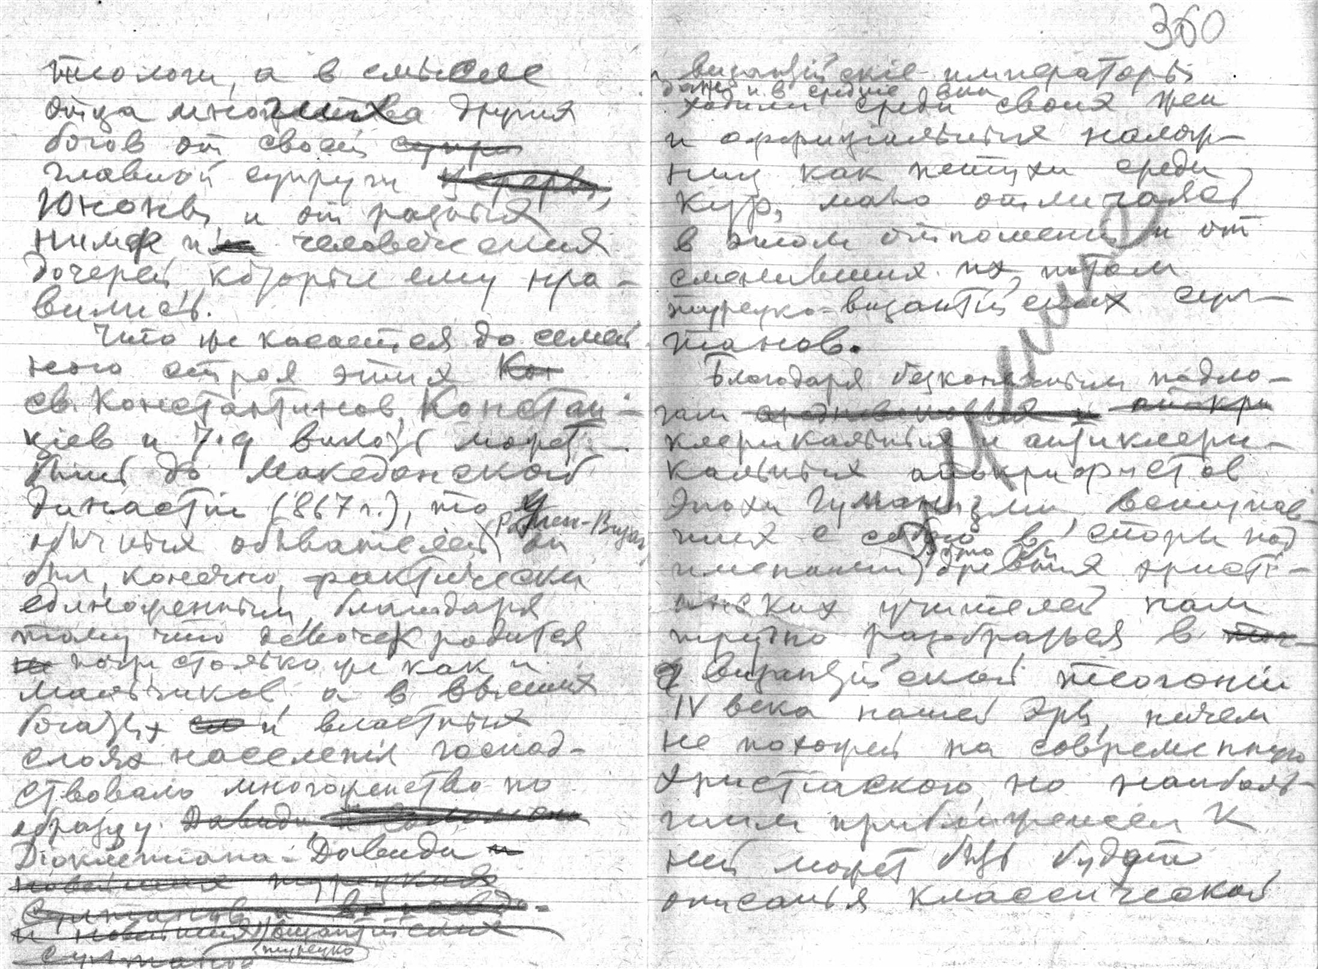 теологи, а в смысле
отца множества других
богов от своей супру
главной супруги
Юноны и от разных
нимф и человеческих
дочерей которые ему нра-
вились.
Что же касается до семей
ного строя этих Кон
св. Константинов, Констан-
ціев и т.д. вплоть может
быть до Македонской
династіи (867 г.), то у
обычных обывателей Ромеи-Визан
был, конечно, фактически
единоженным благодаря
тому что девочек родится
почти столько же как и
мальчиков а в высших
богатых и властных
слоях населенія господ-
ствовало многоженство по
образцу Давида и Соломона
Діоклетіана-Давида и
новейших турецких
султанов
и новейших византийских
турецко
султанов
360
византійскіе императоры
даже и в средние века
ходили среди своих жен
и оффиціальных налож-
ниц как петухи среди
кур, мало отличаясь
в этом отношении и от
сменивших их потом
турецко-византійских сул-
танов.
Благодаря безконечным подло-
гам средневековых и апокри
клерикальных и антиклери-
кальных апокрифистов
Эпохи Гуманизма выступав-
ших с собою в споры под
именами будто бы древних христі-
анских учителей нам
трудно разобраться в
византійской теогоніи
IV века нашей эры, ничем
не похожей на современную
христіаскою, но наиболь-
шим приближением к
ней может быть будет
описанья классической